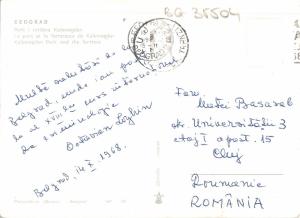 BG 38504
BEOGRAD
Park i tvrđava Kalemegdan
Le parc et la forteresse de Kalemegdan
Kalemegdan Park and the Fortress
Multe salutări de la
Belgrad, unde iau parte
la al XVIII-lea curs internațional
de criminologie
Octavian Loghin
Belgrad, 14.X.1968.
Fam.
Matei Basarab
str. Universității 3
etaj I apart. 15
Cluj
Roumanie
ROMÂNIA